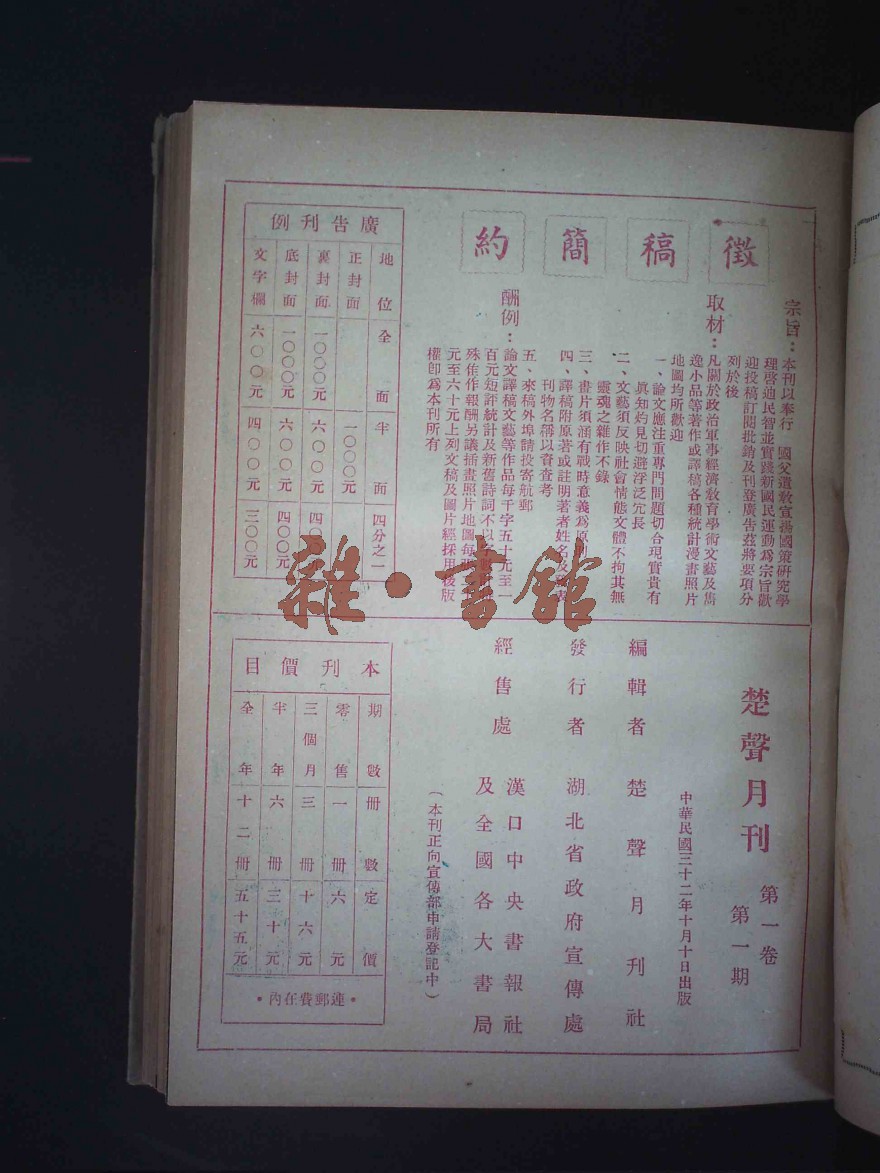 徵稿簡約
宗旨：本刊以奉行　國父遺教宣揚國策研究學
理啓迪民智並實踐新國民運動爲宗旨歡
迎投稿訂閱批銷及刊登廣告茲將要項分
列於後
取材：凡關於政治軍事經濟教育學術文藝及雋
逸小品等著作或譯稿各種統計漫畫照片
地圖均所歡迎
一、論文應注重專門問題切合現實貴有
眞知灼見切避浮泛冗長
二、文藝須反映社會情態文體不拘其無
靈魂之雜作不錄
三、畫片須涵有戰時意義爲原
四、譯稿附原著或註明著者姓名及
刊物名稱以資查考
五、來稿外埠請投寄航郵
酬例：論文譯稿文藝等作品每千字五十元至一
百元短評統計及新舊詩詞不以字
殊佳作報酬另議插畫照片地圖每
元至六十元上列文稿及圖片經採用後版
權卽爲本刊所有
廣告刊例
地位　全面　半面　四分之一
正封面　一〇〇〇元
裏封面　一〇〇〇元　六〇〇元　四〇〇元
底封面　一〇〇〇元　六〇〇元　四〇〇元
文字欄　六〇〇元　四〇〇元　三〇〇元
楚聲月刊　第一卷　第一期
中華民國三十二年十月十日出版
編輯者　楚聲月刊社
發行者　湖北省政府宣傳處
經售處　漢口中央書報社
及全國各大書局
（本刊正向宣傳部申請登記中）
本刊價目
期數　冊數　定價
零售　一冊　六元
三個月　三冊　十六元
半年　六冊　三十元
全年　十二冊　五十五元
•連郵費在內•
雜·書館